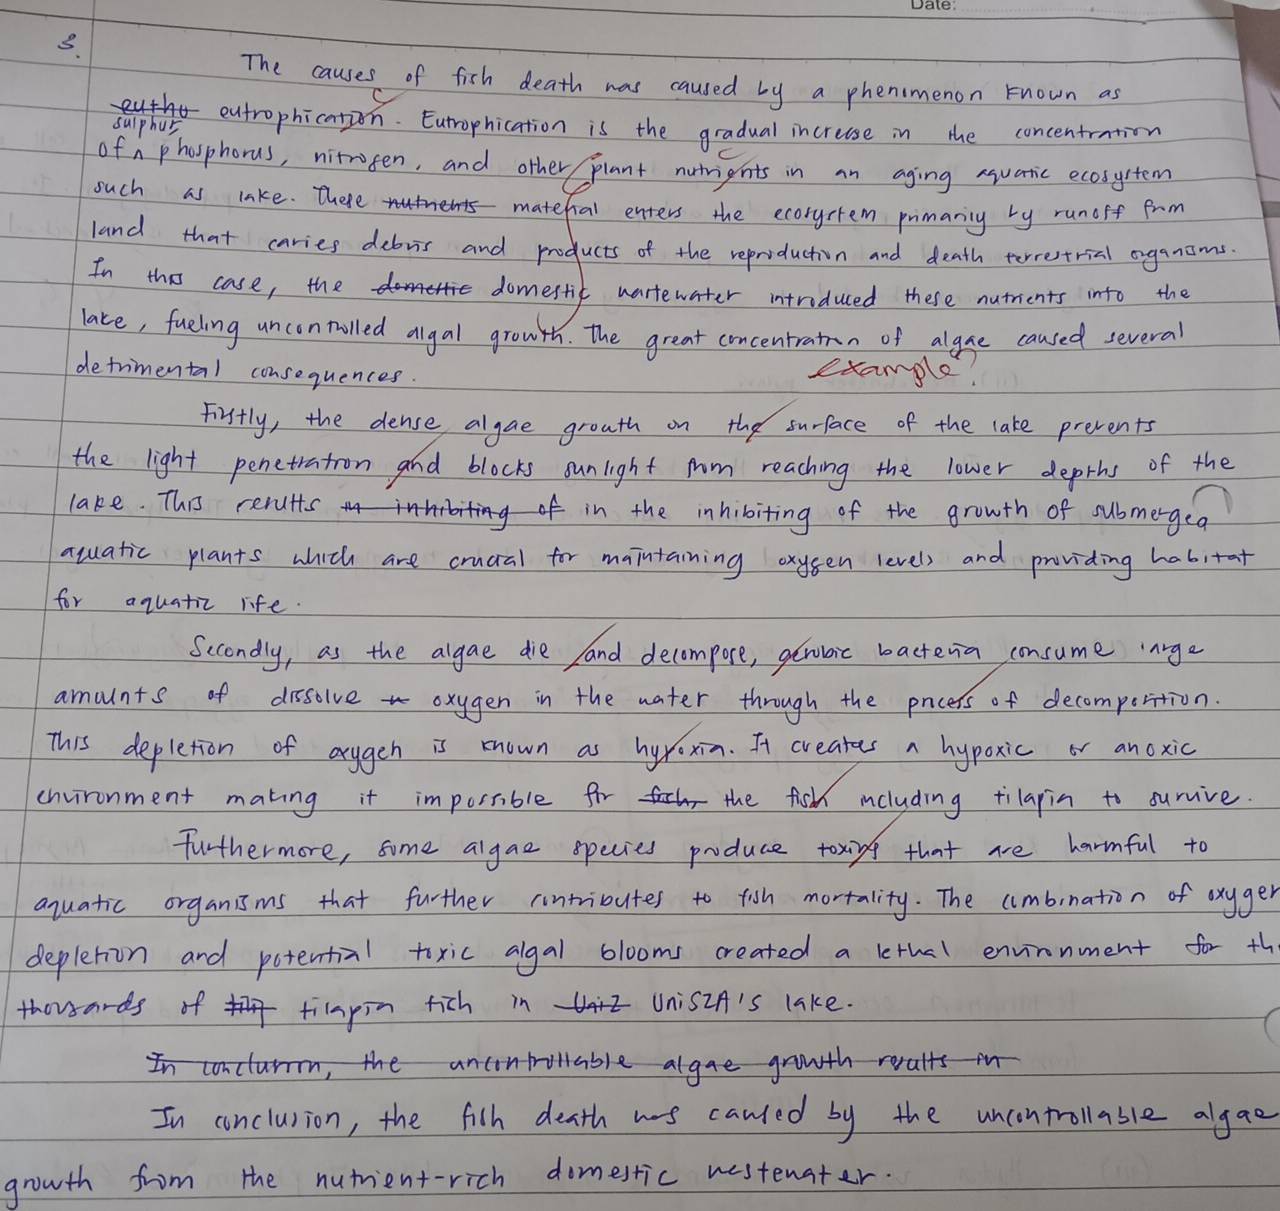 Date:
3.
The causes of fish death was caused by a phenomenon known as
eutho eutrophication. Eutrophication is the gradual increase in the concentration
sulphur,
of ^ phosphorus, nitrogen, and other plant nutrients in an aging aquatic ecosystem
such as lake. These nutrients material enters the ecosystem primarily by runoff from
land that caries debris and products of the reproduction and death terrestrial organisms.
In this case, the domestic domestic wastewater introduced these nutrients into the
lake, fueling uncontrolled algal growth. The great concentration of algae caused several
example?
detrimental consequences.
Firstly, the dense algae growth on the surface of the lake prevents
the light penetration and blocks sunlight from reaching the lower depths of the
lake. This results in inhibiting of in the inhibiting of the growth of submerged
aquatic plants which are crucial for maintaining oxygen levels and providing habitat
for aquatic life.
Secondly, as the algae die and decompose, aerobic bacteria consume large
amounts of dissolve oxygen in the water through the process of decomposition.
This depletion of oxygen is known as hypoxia. It creates a hypoxic or anoxic
environment making it impossible for fish, the fish including tilapia to survive.
Furthermore, some algae species produce toxins that are harmful to
aquatic organisms that further contributes to fish mortality. The combination of oxygen
depletion and potential toxic algal blooms created a lethal environment for the
thousands of tilapia fish in UniSZA's lake.
In conclusion, the uncontrollable algae growth results in
In conclusion, the fish death was caused by the uncontrollable algae
growth from the nutrient-rich domestic wastewater.